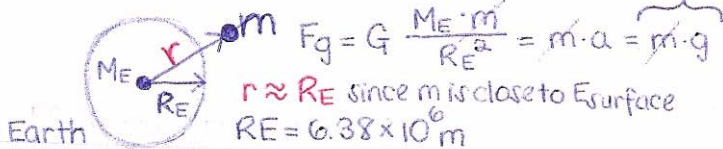 m
r
ME
RE
Earth
Fg = G ME·m / RE² = m·a = m·g
r ≈ RE since m is close to Esurface
RE = 6.38 × 10⁶ m